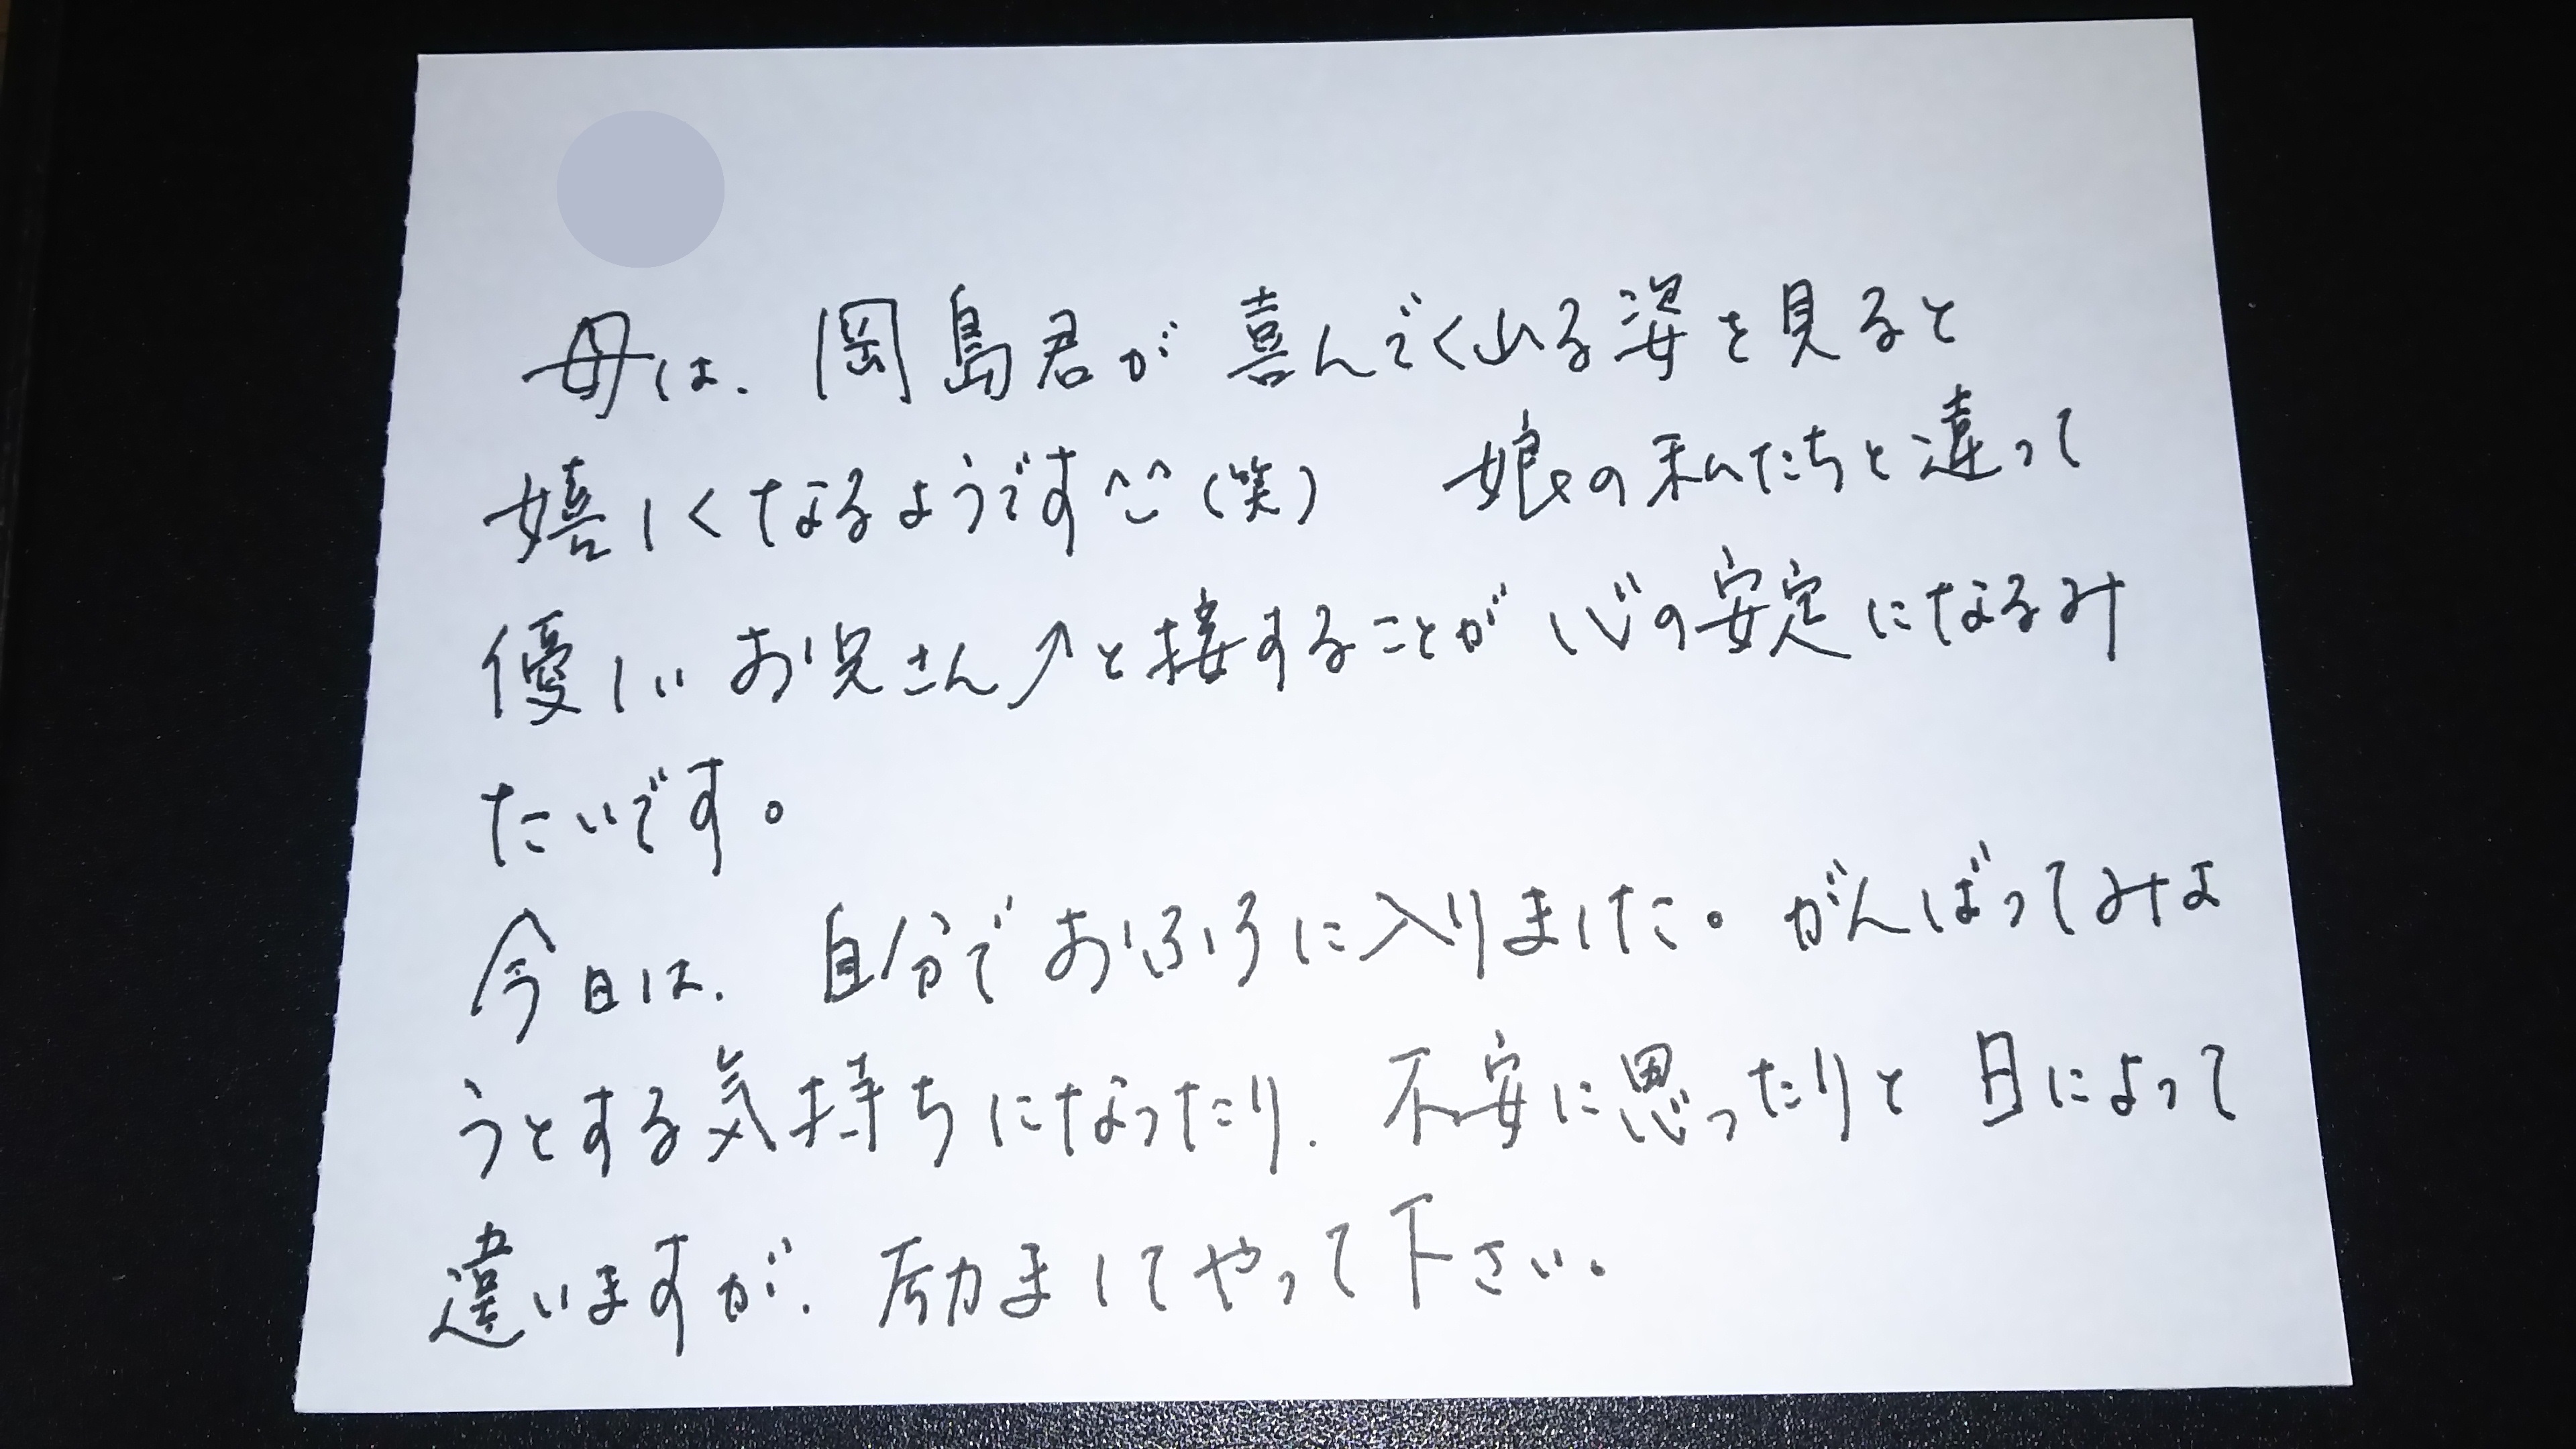 母は、岡島君が喜んでくれる姿を見ると
嬉しくなるようです^^(笑) 娘の私たちと違って
優しいお兄さん↗と接することが心の安定になるみ
たいです。
今日は、自分でおふろに入りました。がんばってみよ
うとする気持ちになったり、不安に思ったりと日によって
違いますが、励ましてやって下さい。